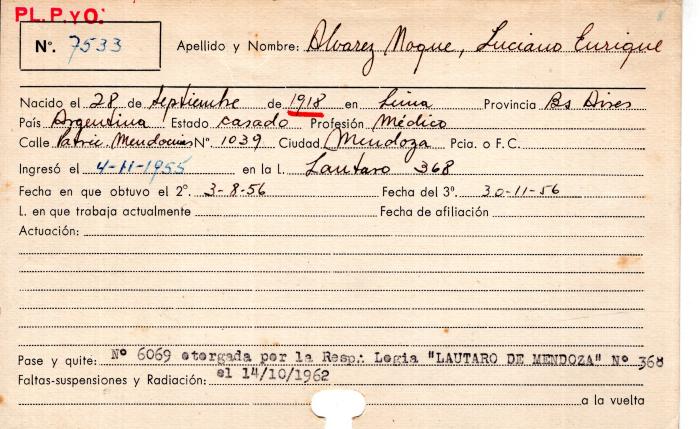 PL. P. y O.
Nº. 7533
Apellido y Nombre: Alvarez Noque, Luciano Enrique
Nacido el 28 de septiembre de 1918 en Lima Provincia Bs Aires
País Argentina Estado casado Profesión Médico
Calle Patric. Mendocinas Nº. 1039 Ciudad Mendoza Pcia. o F.C.
Ingresó el 4-11-1955 en la L. Lautaro 368
Fecha en que obtuvo el 2º. 3-8-56 Fecha del 3º. 30-11-56
L. en que trabaja actualmente Fecha de afiliación
Actuación:
Pase y quite: Nº 6069 otorgada por la Resp∴ Logia "LAUTARO DE MENDOZA" Nº 368
Faltas-suspensiones y Radiación: el 14/10/1962
a la vuelta